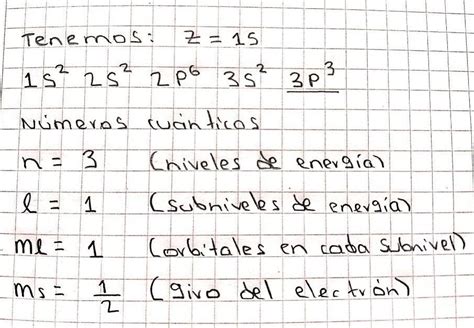 Tenemos: Z = 15
1s² 2s² 2p⁶ 3s² 3p³
Números cuánticos
n = 3 (niveles de energía)
l = 1 (subniveles de energía)
ml = 1 (orbitales en cada subnivel)
ms = 1/2 (giro del electrón)